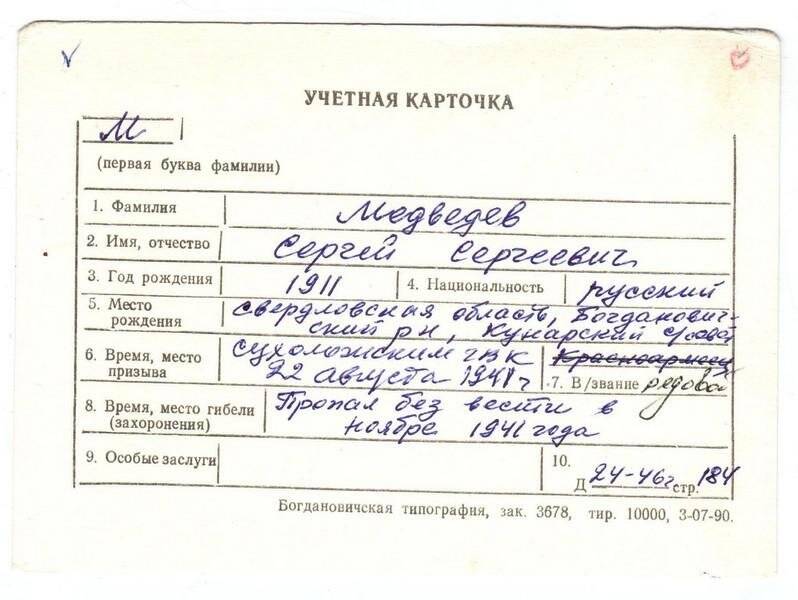 УЧЕТНАЯ КАРТОЧКА
М
(первая буква фамилии)
1. Фамилия Медведев
2. Имя, отчество Сергей Сергеевич
3. Год рождения 1911 4. Национальность русский
5. Место рождения Свердловская область, Богданович-
ский р-н, Кунарский с/совет
6. Время, место призыва Сухоложским ГВК
22 августа 1941 г
Красноармеец
7. В/звание рядовой
8. Время, место гибели (захоронения) Пропал без вести в
ноябре 1941 года
9. Особые заслуги
10.
Д 24-46г стр. 184
Богдановичская типография, зак. 3678, тир. 10000, 3-07-90.